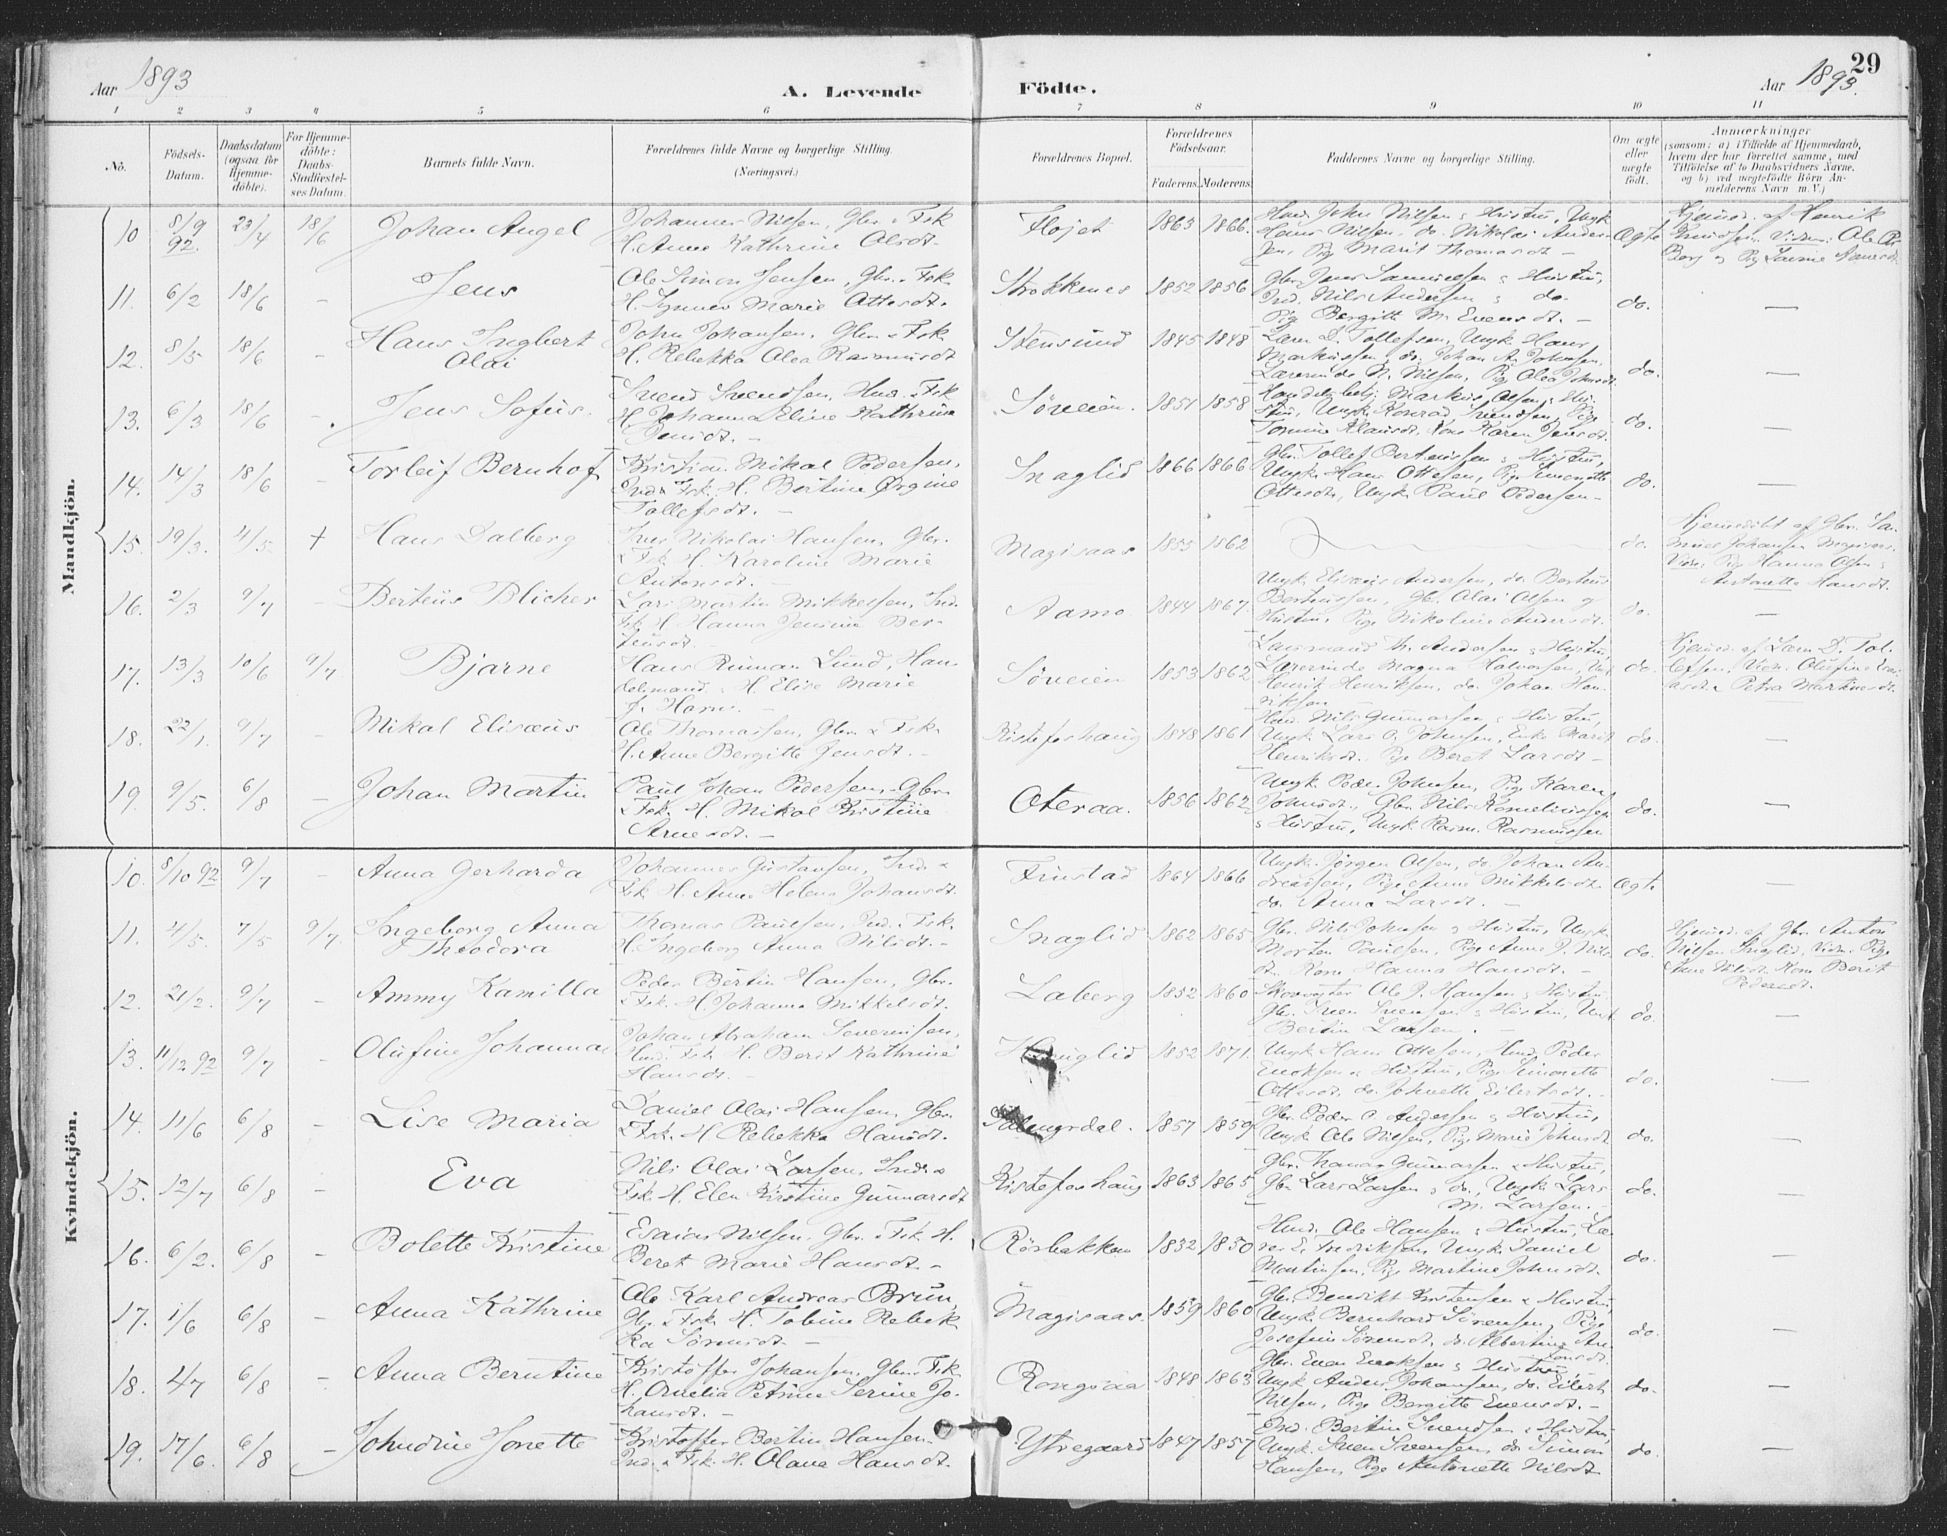 Aar 1893
A. Levende
Födte.
Aar 1893.
29
1 2 3 4 5 6 7 8 9 10 11
No.
Födsels-
Datum.
Daabsdatum
(ogsaa for
Hjemme-
döbte).
For Hjemme-
döbte:
Daabs-
Stadfæstel-
ses Datum.
Barnets fulde Navn.
Forældrenes fulde Navne og borgerlige Stilling.
(Næringsvei.)
Forældrenes Bopæl.
Forældrenes
Födselsaar.
Faderens. Moderens.
Faddernes Navne og borgerlige Stilling.
Om ægte
eller
uægte
födt.
Anmærkninger
(saasom: a) i Tilfælde af Hjemmedaab,
hvem der har forrettet samme, med
Tilföielse af to Daabsvidners Navne.
og b) ved uægtefödte Börn An-
melderens Navn m. V.)
Mandkjön.
10 8/9 92. 23/4 18/6 Johan Angel
Johannes Nilsen, Gbr. & Fsk
H. Anne Kathrine Olsdt.
Fløjet 1863 1866.
Hans Nilsen, do. Nikolai Ander-
sen, Pig Marit Thomasdt. –
Ægte
Hjemmed. af Henrik
11. 6/2 18/6 – Jens
Ole Simon Jensen, Gbr. & Fsk
H. Agnes Marie Ottesdt.
Strokkenes 1852 1856
Gbr. Jens Samuelsen & Hustru,
Ind. Nils Andersen & do.
Pig Bergitte M. Evensdt. –
do. –
12. 8/5 18/6 – Hans Ingbert
Olai
John Johansen, Gbr. & Fsk
H. Rebekka Olea Rasmusdt
Stensund 1845 1848
Lærer D. Tollefsen, Ungk Hans
Markussen, do. Johan A. Johnsen,
Lærerinde N. Nilsen, Pig Olea Johnsdt
do. –
13. 6/3 18/6 – Jens Sofus.
Svend Svendsen, Hmd. & Fsk
H. Johanna Eline Kathrine
Søveien. 1851 1858
Handelsbetj Markus Olsen & Hu-
stru, Ungk Konrad Svendsen, Pige
Tomine Klausdt. Kone Karen Jensdt.
do. –
14. 14/3 18/6 – Torleif Bernhof
Kristian Mikal Pedersen,
Ind & Fsk. H. Bertine Ørgine
Tollefsdt. –
Snaglid 1866 1866
Ungk Hans Ottesen, Pig Simonette
Ottesdt, Ungk Paul Pedersen –
do. –
15. 19/3. 4/5. + Hans Dalberg
Jens Nikolai Hansen, Gbr.
& Fsk. H. Karoline Marie
Antonsdt. –
Magisaas 1855 1862
do.
Hjemmedöbt af Gbr.
Johansen Magisaas
Vidn. Pig Hanna Olsen &
Antonette Hansdt.
16. 2/3 9/7 – Berteus Blicher
Lars Martin Mikkelsen, Ind.
Fsk H Hanna Jensine Ber-
teusdt.
Aamo 1844 1867.
Ungk. Elisæus Andersen, do. Berteus
Berteussen, Gbr. Olai Olsen og
Hustru, Pige Nikoline Andersdt.
do. –
17. 13/3 10/6 9/7 Bjarne
Hans Reinan Lund, Han-
delsmand. & H. Elise Marie
f. Harms. –
Søveien 1853 1862
Lærerinde Magna Halvorsen, Ungk
Henrik Henriksen, do. Johan Hen-
riksen
do.
Hjemmed. af Lærer D. Tol-
lefsen. Vidn. Olufine
Petra Martinusdt.
18. 22/1. 9/7 – Mikal Elisæus
Ole Thomassen, Gbr. & Fsk.
H. Anne Bergitte Jensdt. –
Kistefoshaug 1848 1861
Hmd. Nils Gunnarsen & Hustru,
Ungk Lars O. Johnsen, Enke Marit
Henriksdt. Pige Beret Larsdt –
do. –
19. 9/5. 6/8 – Johan Martin
Paul Johan Pedersen, Gbr.
& Fsk. H. Mikal Kristine
Arnesdt. –
Oteraa. 1856 1862
Ungk Peder Johnsen, Pig Karen
Johnsdt, Gbr. Nils Korneliussen
& Hustru, Ungk Rasm. Rasmussen
do. –
Kvindekjön.
10. 8/10 92 9/7 – Anna Gerharda
Johannes Gustavsen, Ind. &
Fsk H. Anne Helena Johansdt.
Finstad 1864 1866
Ungk. Jørgen Olsen, do Johan An-
dreassen, Pige Anne Mikkelsdt.
do. Anna Larsdt. –
Ægte –
11. 4/5. 7/5 9/7. Ingeborg Anna
Theodora
Thomas Paulsen, Ind. & Fsk.
H. Ingeborg Anna Nilsdt. –
Snaglid 1862 1865
Gbr. Nils Johnsen og Hustru, Ungk
Morten Paulsen, Pige Anne J. Nils-
dt. Kone Hanna Hansdt. –
do.
Hjemmed. af Gbr. Anton
Nilsen Snaglid, Vidn. Pige
Anne Nilsdt. Kone Berit
Pedersdt.
12. 21/2. 9/7 – Ammy Kamilla
Peder Bertin Hansen, Gbr.
& Fsk. H. Johanna Mikkelsdt. –
Laberg 1852 1860
Skovvogter Ole J. Hansen & Hustru
Gbr. Sven Svensen & Hustru, Ungk
Bertin Larsen. –
do. –
13. 11/12 92 9/7 – Olufine Johanna
Johan Abraham Severinsen,
Hmd. Fsk H. Berit Kathrine
Hansdt. –
1852 1871.
Ungk Hans Ottesen, Hmd. Peder
Enoksen & Hustru, Pige Simonette
Ottesdt. do. Johnette Eilertsdt. –
do. –
14. 11/6 6/8 – Lise Maria
Daniel Olai Hansen, Gbr.
& Fsk. H Rebekka Hansdt.
1857 1859
Gbr. Peder O. Andersen & Hustru,
Ungk Ole Nilsen, Pige Marie Johnsdt
do. –
15. 12/7 6/8 – Eva
Nils Olai Larsen, Ind. &
Fsk. H. Elen Kirstine Gunnarsdt
Kistefoshaug 1863 1865
Gbr. Thomas Gunnarsen & Hustru,
Gbr Lars Larsen & do., Ungk Lars
M. Larsen. –
do. –
16. 6/2. 6/8 – Bolette Kristine
Esaias Nilsen, Gbr. & Fsk. H.
Beret Marie Hansdt. –
Rørbakken 1832 1850
Hmd. Ole Hansen & Hustru, Læ-
rer E. Fredriksen, Ungk Daniel
Martinsen, Pige Martine Johnsdt.
do. –
17. 1/6 6/8 – Anna Kathrine
Ole Karl Andreas Brun,
Gbr. & Fsk. H. Tobine Rebek-
ka Sørensdt. –
Magisaas. 1859 1860
Gbr. Benedikt Kristensen & Hustru,
Ungk Bernhard Sørensen, Pige
Josefine Sørensdt, do. Albertine An-
tonsdt.
do. –
18. 4/7 6/8 – Anna Berntine
Kristoffer Johansen, Gbr. & Fsk
H. Amelia Petrine Serine Jo-
hansdt. –
Rongsaa 1848 1863
Gbr. Even Enoksen & Hustru,
Ungk Anders Johansen, do. Eilert
Nilsen, Pige Bergitte Evensdt. –
do. –
19. 17/6. 6/8 – Johndine Jonette
Kristoffer Bertin Hansen
Ind. & Fsk. H. Olava Hansdt.
Ytregaard 1847 1857
Ind. Bertin Svendsen & Hustru
Ungk. Sven Svensen, do. Simon
Hansen, Pige Antonette Nilsdt.
do. –